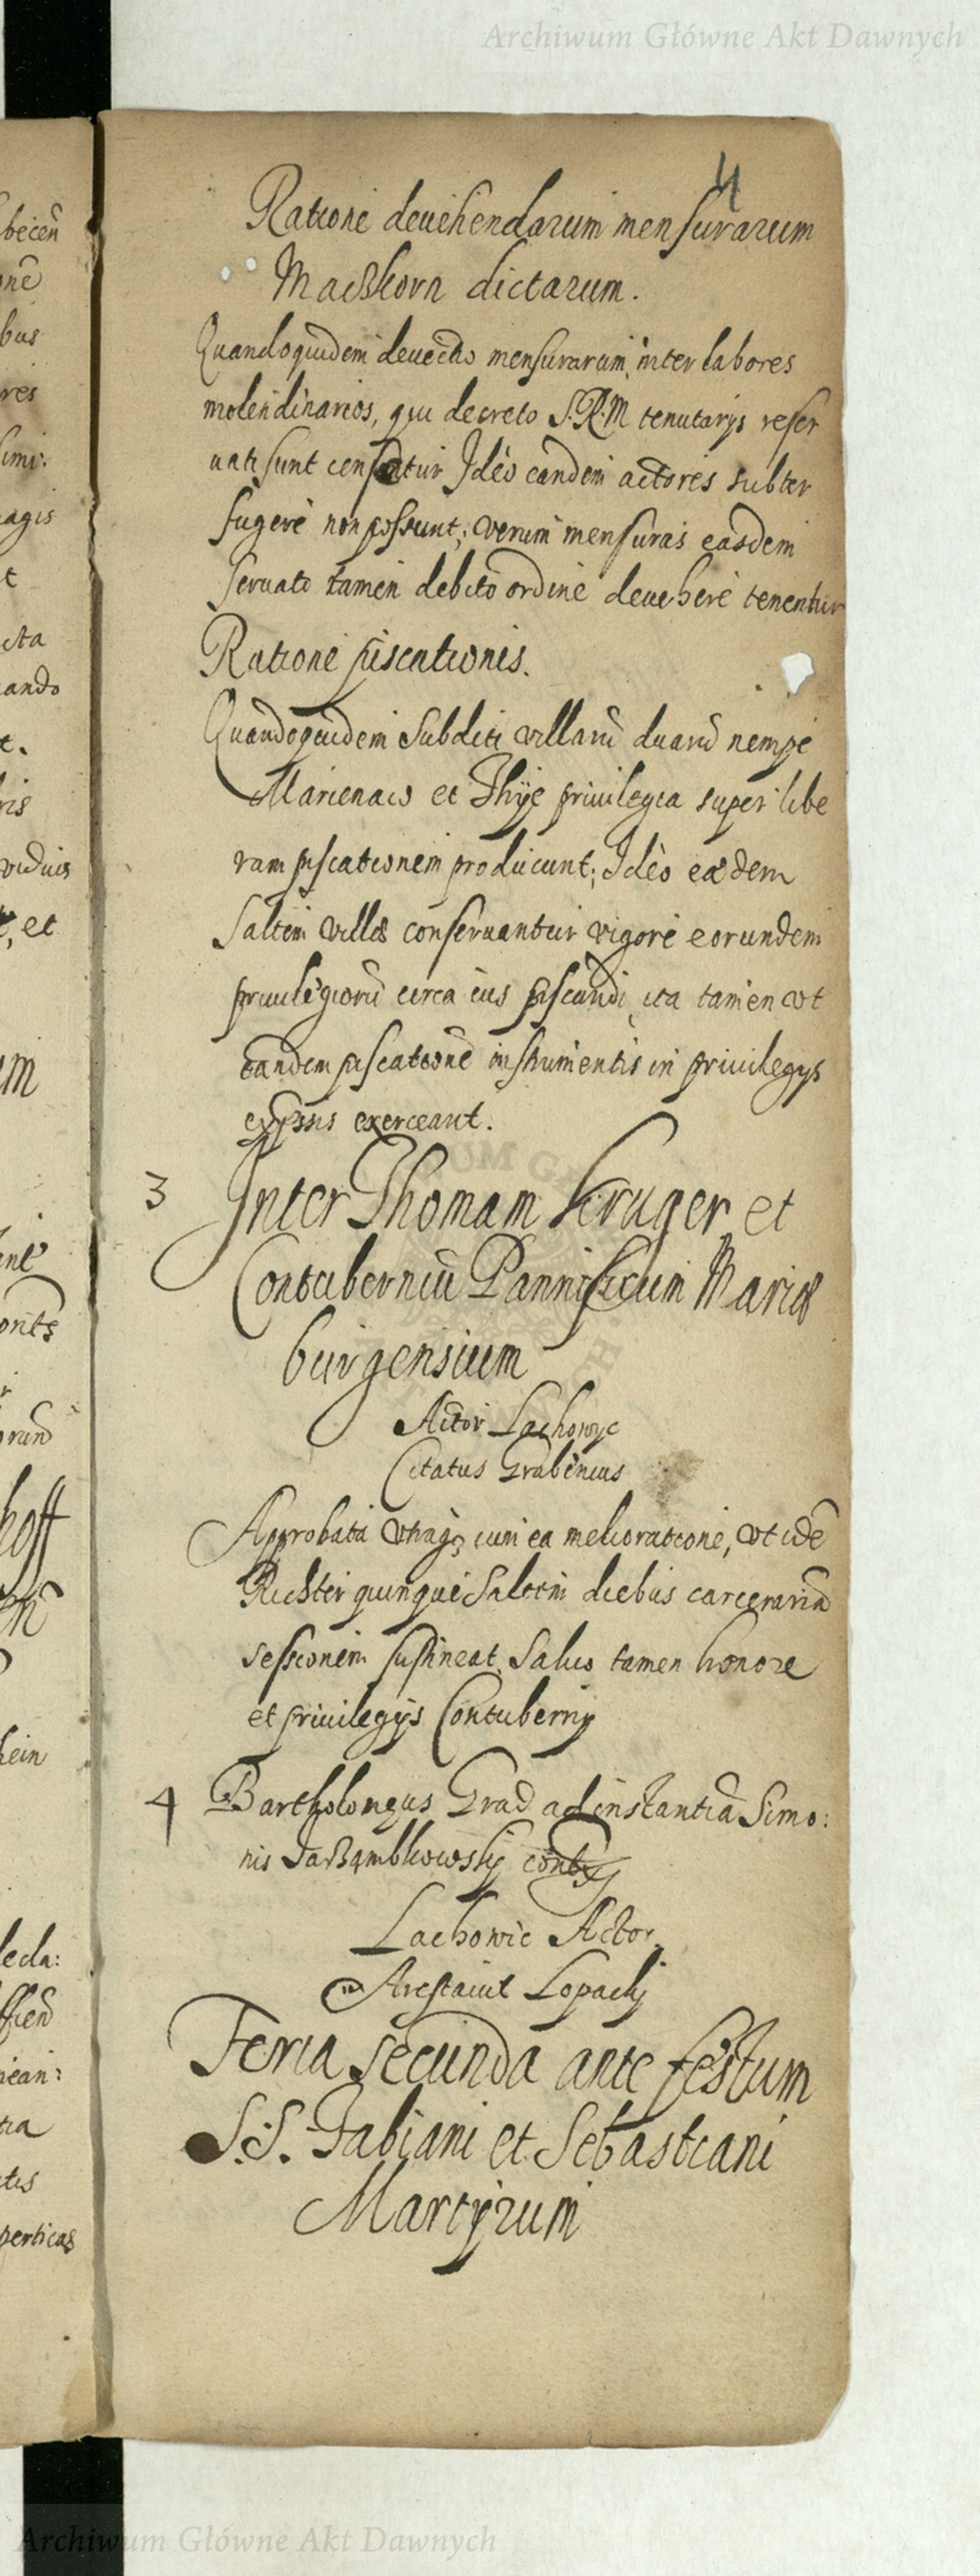 Archiwum Główne Akt Dawnych
4
Ratione devehendarum mensurarum
Maczkorn dictarum.
Quandoquidem devectio mensurarum, inter labores
molendinarios, qui decreto S.R.M tenutarys reser
vati sunt censentur Ideo eandem actores subter
fugere non possunt; verum mensuras easdem
servato tamen debito ordine devehere tenentur
Ratione piscationis.
Quandoquidem Subditi villarũ duarũ nempe
Marienaw et Thije privilegia super libe
ram piscationem producunt; Ideo eædem
Saltim villæ conservantur vigore eorundem
privilegiorũ circa ius piscandi, ita tamen vt
eandem piscationẽ instrumentis in privilegys
expssis exerceant.
3 Inter Thomam Kruger et
Contuberniũ Pannificum Mariæ
burgensium
Actor Lachowyc
Citatus Grabenius
Approbata vtraqz cum ea melioratione, vt idẽ
Richter quinque Saltem diebus carcerariã
sessionem sustineat, Salvo tamen honore
et privilegijs Contubernij
4 Bartholomęus Grad ad instantiã Simo:
nis
Lachowic Actor
Arestavit Lopacki
Feria secunda ante festum
S.S. Fabiani et Sebastiani
Martyrum
becen
onẽ
bus
res
simi:
magis
t
cta
ando
t.
ris
viduis
, et
um
ent
onts
r
orũ
hoff
hein
lecla:
ficiẽ
nean:
tia
tis
perticas
Archiwum Główne Akt Dawnych